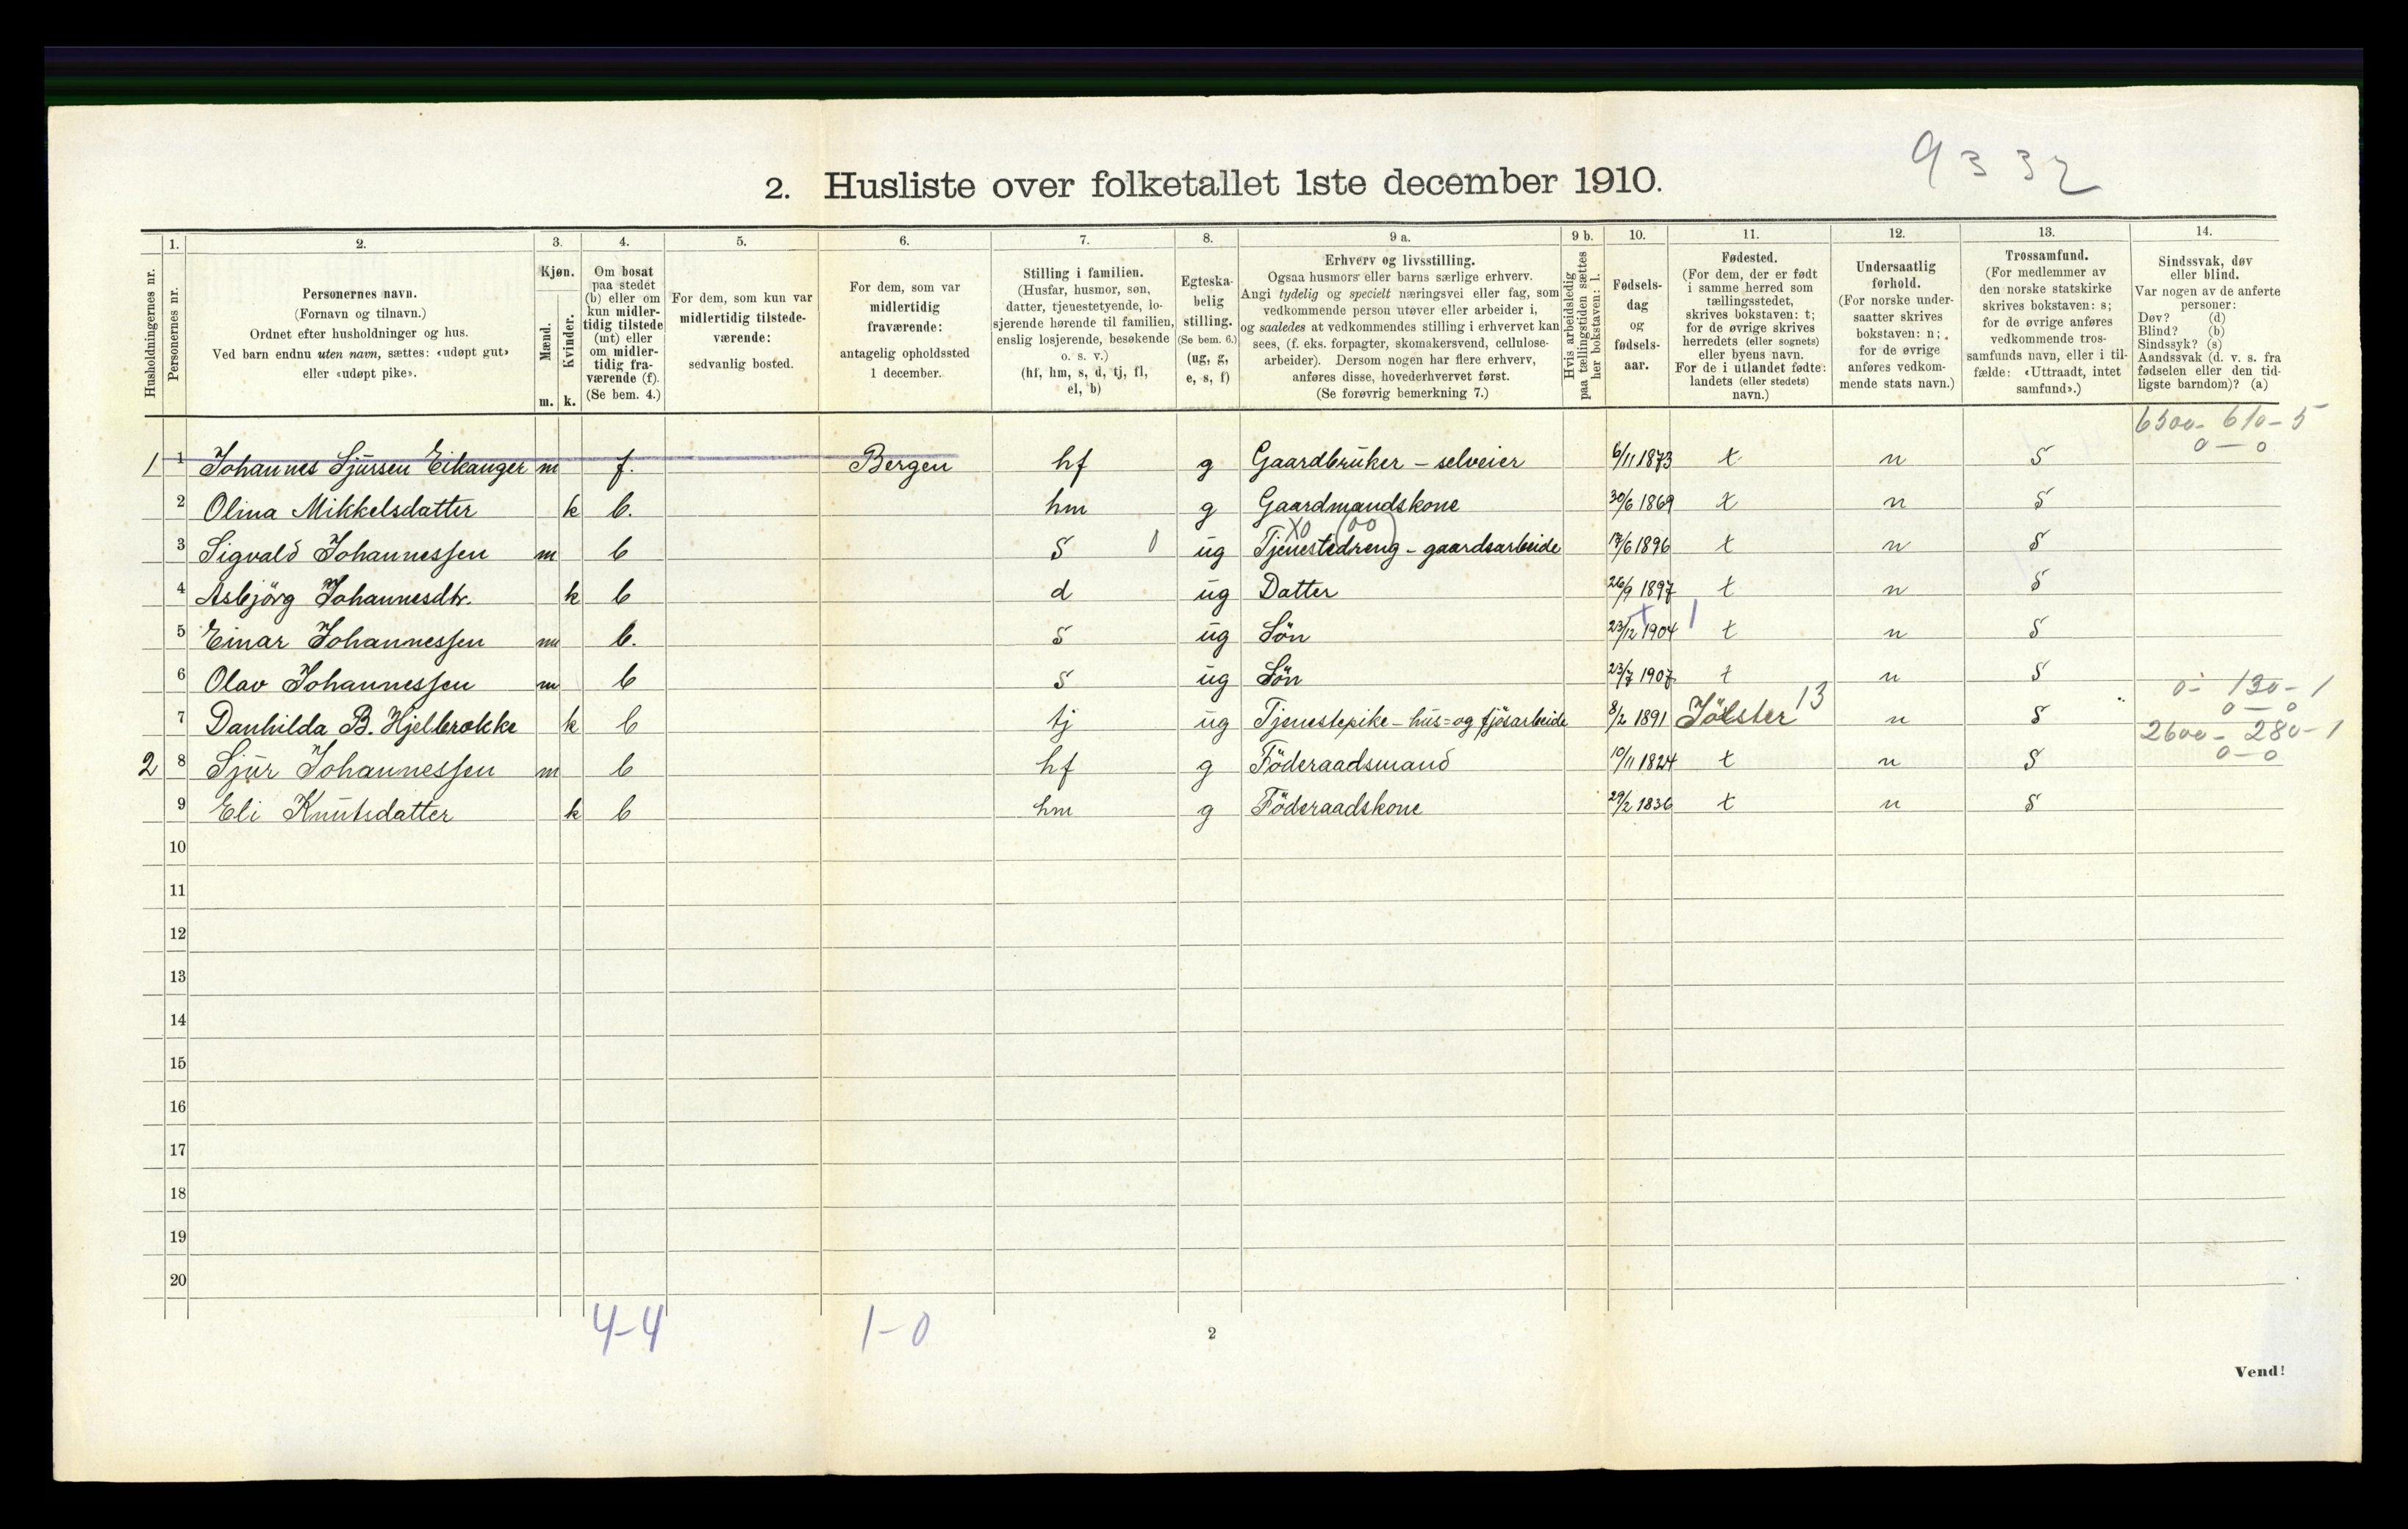 9 3 32
2. Husliste over folketallet 1ste december 1910.
Husholdningernes nr.
1.
Personernes nr.
2.
Personernes navn.
(Fornavn og tilnavn.)
Ordnet efter husholdninger og hus.
Ved barn endnu uten navn, sættes: «udøpt gut»
eller «udøpt pike».
3.
Kjøn.
Mænd.
Kvinder.
m. k.
4.
Om bosat
paa stedet
(b) eller om
kun midler-
tidig tilstede
(mt) eller
om midler-
tidig fra-
værende (f).
(Se bem. 4.)
5.
For dem, som kun var
midlertidig tilstede-
værende:
sedvanlig bosted.
6.
For dem, som var
midlertidig
fraværende:
antagelig opholdssted
1 december.
7.
Stilling i familien.
(Husfar, husmor, søn,
datter, tjenestetyende, lo-
sjerende hørende til familien,
enslig losjerende, besøkende
o. s. v.)
(hf, hm, s, d, tj, fl,
el, b)
8.
Egteska-
belig
stilling.
(Se bem. 6.)
(ug, g,
e, s, f)
9 a.
Erhverv og livsstilling.
Ogsaa husmors eller barns særlige erhverv.
Angi tydelig og specielt næringsvei eller fag, som
vedkommende person utøver eller arbeider i,
og saaledes at vedkommendes stilling i erhvervet kan
sees, (f. eks. forpagter, skomakersvend, cellulose-
arbeider). Dersom nogen har flere erhverv,
anføres disse, hovederhvervet først.
(Se forøvrig bemerkning 7.)
9 b.
Hvis arbeidsledig
paa tællingstiden sættes
her bokstaven: l.
10.
Fødsels-
dag
og
fødsels-
aar.
11.
Fødested.
(For dem, der er født
i samme herred som
tællingsstedet,
skrives bokstaven: t;
for de øvrige skrives
herredets (eller sognets)
eller byens navn.
For de i utlandet fødte:
landets (eller stedets)
navn.)
12.
Undersaatlig
forhold.
(For norske under-
saatter skrives
bokstaven: n;
for de øvrige
anføres vedkom-
mende stats navn.)
13.
Trossamfund.
(For medlemmer av
den norske statskirke
skrives bokstaven: s;
for de øvrige anføres
vedkommende tros-
samfunds navn, eller i til-
fælde: «Uttraadt, intet
samfund».)
14.
Sindssvak, døv
eller blind.
Var nogen av de anførte
personer:
Døv? (d)
Blind? (b)
Sindssyk? (s)
Aandssvak (d. v. s. fra
fødselen eller den tid-
ligste barndom)? (a)
6500- 610-5
0-0
1 1 Johannes Sjursen Eikanger m f. Bergen hf g Gaardbruker - selveier 6/11 1873 t n S
2 Olina Mikkelsdatter k b. hm g Gaardmandskone 30/6 1869 t n S
X0 (00)
3 Sigvald Johannessen m b S 0 ug Tjenestedreng - gaardsarbeide 17/6 1896 t n S
4 Asbjörg Johannesdtr. k b d ug Datter 26/9 1897 t n S
5 Einar Johannessen m b. S ug Sön 23/12 1904 t n S
6 Olav Johannessen m b S ug Sön 23/7 1907 t n S
0- 130-1
0-0
7 Danhilda B. Hjelbrekke k b tj ug Tjenestepike - hus= og fjösarbeide 8/2 1891 Jölster 13 n S
2600- 280-1
0-0
2 8 Sjur Johannessen m b hf g Föderaadsmand 10/11 1824 t n S
9 Eli Knutsdatter k b hm g Föderaadskone 29/2 1836 t n S
10
11
12
13
14
15
16
17
18
19
20
4-4 1-0
2
Vend!